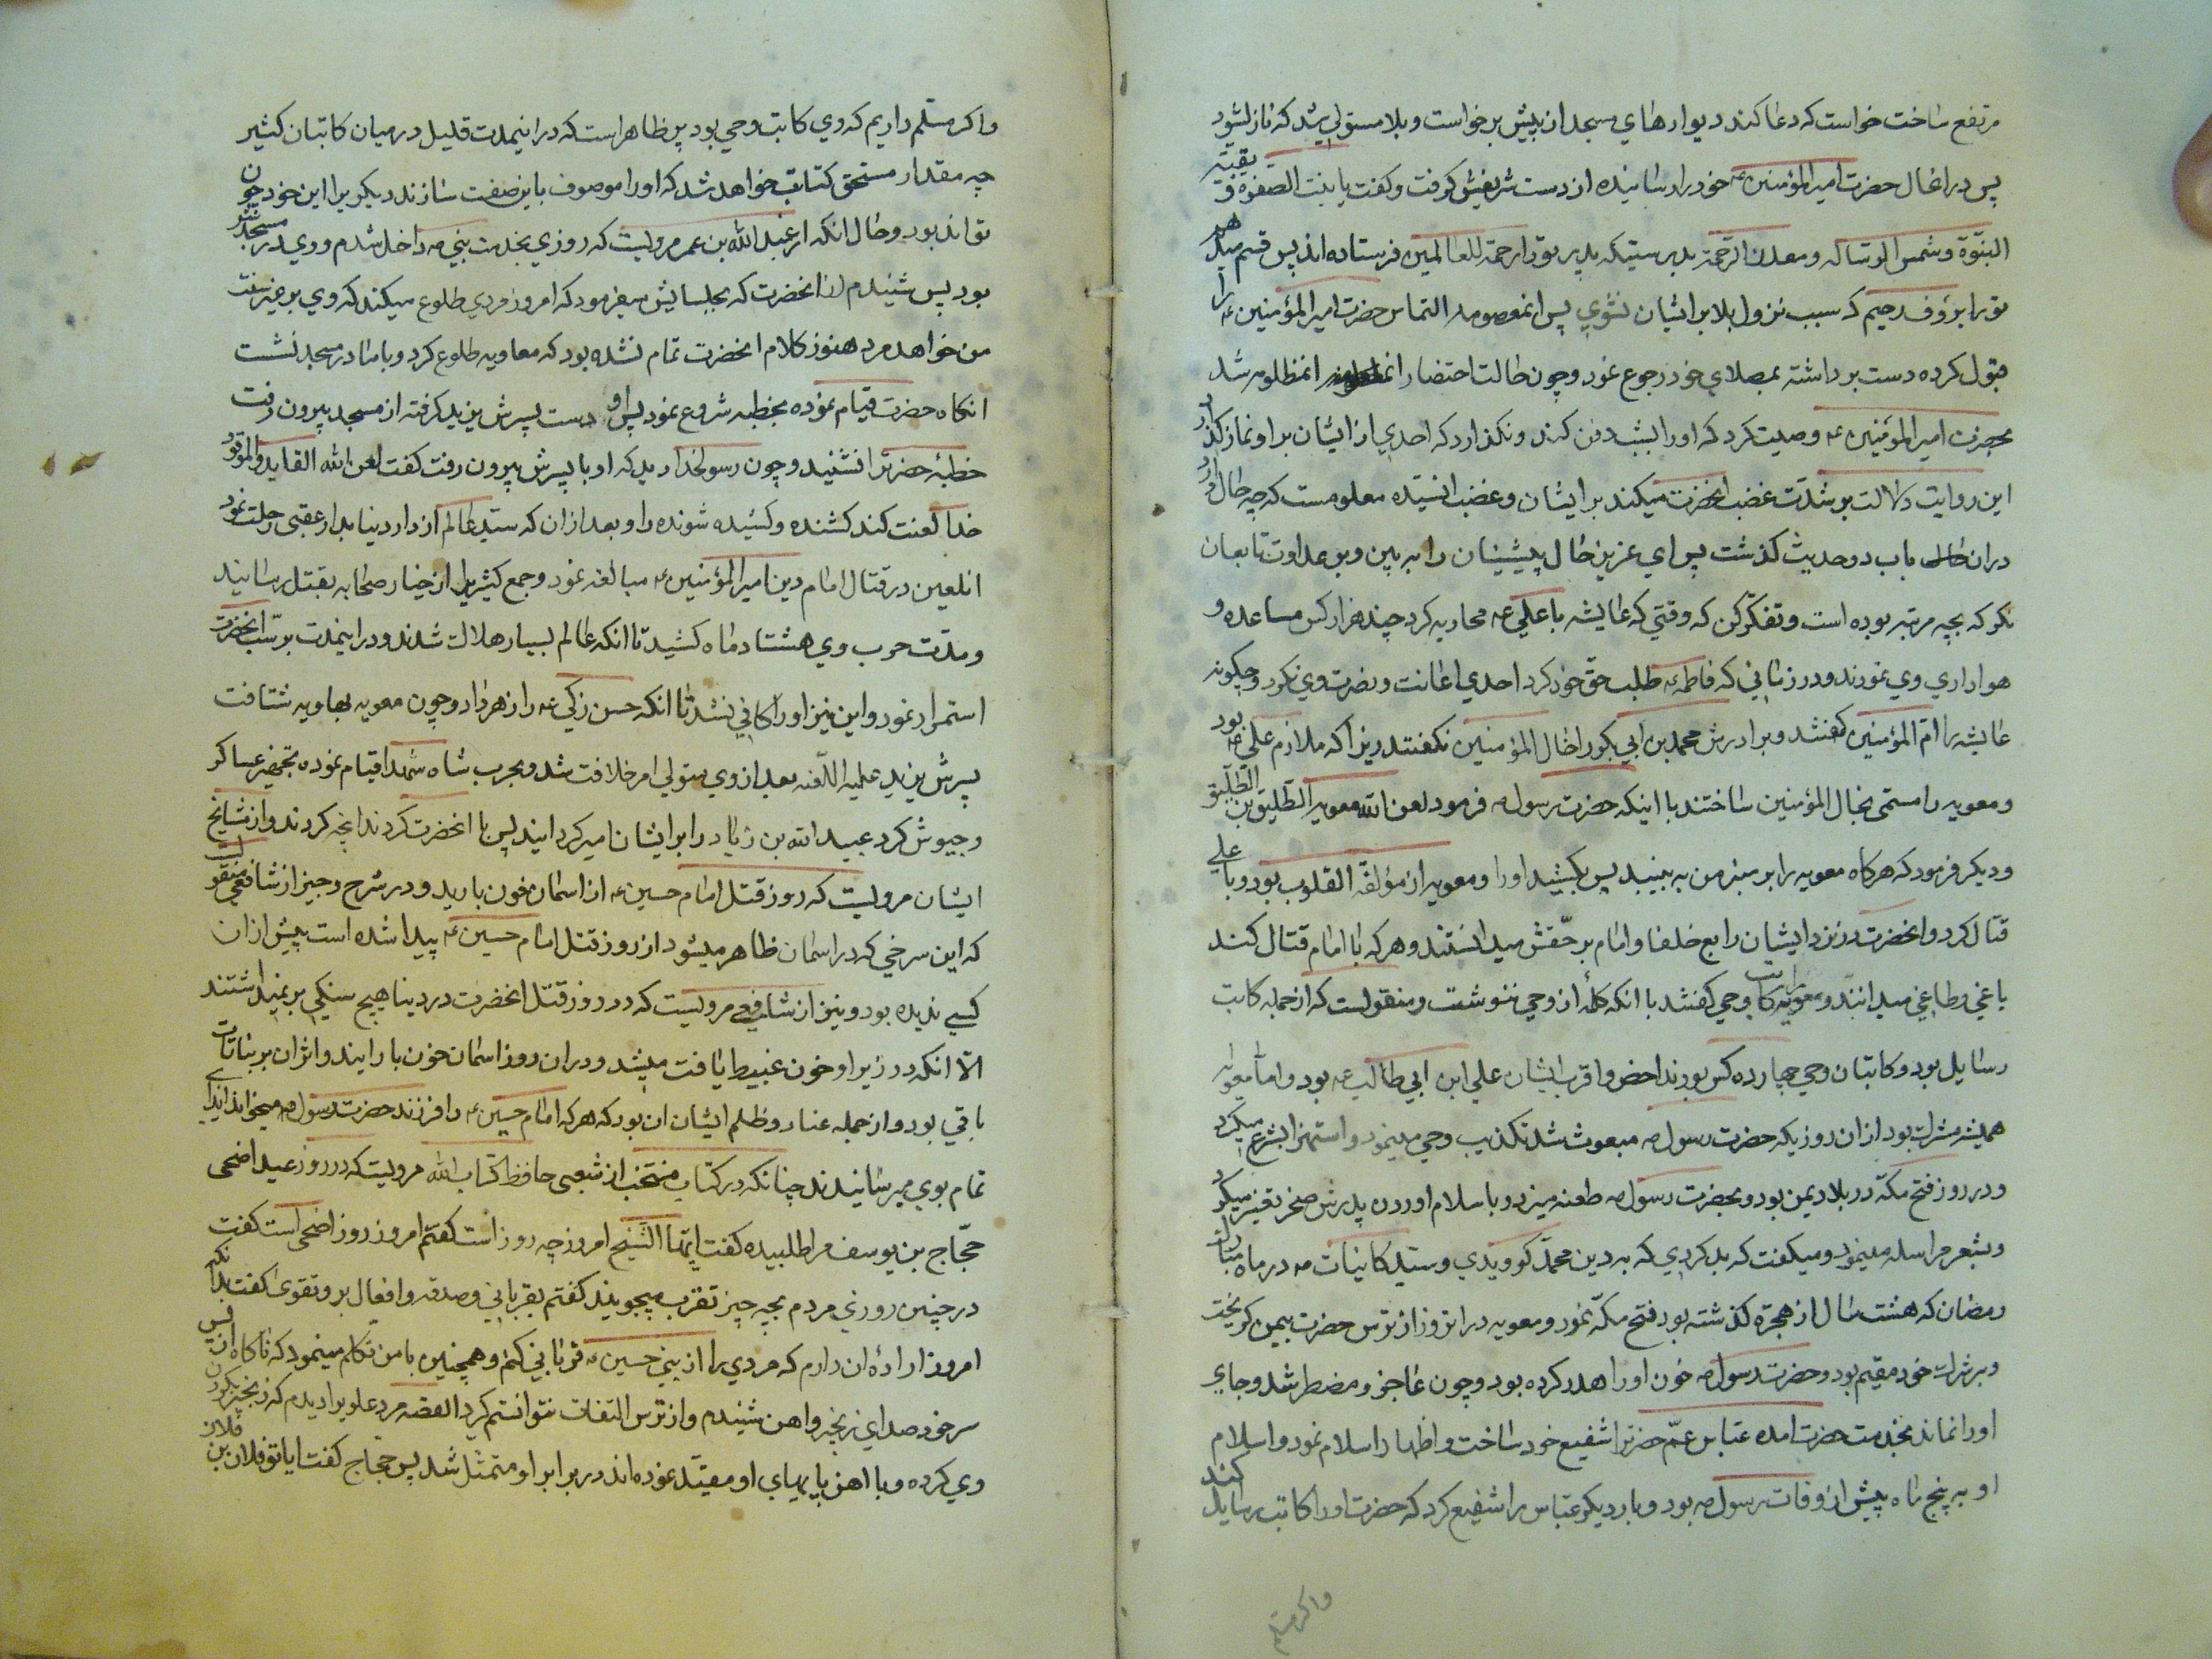 مرتفع ساخت خواست که دعا کند دیوارهای مسجد از بیش برخواست و بلا مستولی شد که نازل شود
پس در انحال حضرت امیرالمؤمنین ع خود را رسانیده از دست شریفش کرفت و کفت یا بنت الصفوة و بقیته
النبوّة و شمس الرساله و معدن الرّحمة بدرستیکه پدر تو را رحمة للعالمین فرستاده اند پس قسم میدهم
تو را برؤف رحیم که سبب نزول بلا بر ایشان نشوی پس انمعصومه التماس حضرت امیرالمؤمنین ع را
قبول کرده دست برداشته بمصلای خود رجوع نمود و چون حالت احتضار انمظلومه شد
بحضرت امیرالمؤمنین ع وصیت کرد که او را بشب دفن کند و نکذارد که احدی از ایشان بر او نماز کذارد
این روایت دلالت بر شدّت غضب انحضرت میکند بر ایشان و غضب انسیّده معلومست که چه حال دارد
دران باب دو حدیث کذشت پس ای عزیز حال پیشینیان را به بین و بعداوت تابعان
نکر که بچه مرتبه بوده است و تفکّر کن که وقتی که عایشه با علی ع محاربه کرد چند هزار کس مساعده و
هواداری وی نمودند و در زمانی که فاطمه ع طلب حقّ خود کرد احدی اعانت و نصرت وی نکرد و چکونه
عایشه را امّ المؤمنین کفتند و برادرش محمد بن ابی بکر را خال المؤمنین نکفتند زیرا که ملازم علی ع بود
و معویه را مسمّی بخال المؤمنین ساختند با اینکه حضرت رسول ص فرمود لعن الله معویه الطّلیق بن الطّلیق
و دیکر فرمود که هرکاه معویه را بر منبر من به بینید پس بکشید او را و معویه از مؤلفة القلوب بود و با علی
قتال کرد و انحضرت در نزد ایشان رابع خلفا و امام بر حقّش میدانستند و هر که با امام قتال کند
باغی و طاغی میدانند و معویه را کاتب وحی کفتند با انکه کلمهٔ از وحی ننوشت و منقولست که از جمله کاتب
رسایل بود و کاتبان وحی چهارده کس بودند اخص و اقرب ایشان علی ابن ابی طالب ع بود و امّا معویه
همیشه مشرک بود ازان روزیکه حضرت رسول ص مبعوث شد تکذیب وحی مینمود و استهزا بشرع میکرد
و در روز فتح مکّه در بلاد یمن بود و بحضرت رسول ص طعنه میزد و باسلام اوردن پدرش صخر تعییر میکرد
و بشعر مراسله مینمود و میکفت که بد کردی که به دین محمّد کرویدی و سیّد کاینات ص در ماه مبارک
رمضان که هشت سال از هجرة کذشته بود فتح مکّه نمود و معویه درانروز از ترس حضرت بیمن کریخت
و بر شرک خود مقیم بود و حضرت رسول ص خون او را هدر کرده بود و چون عاجز و مضطر شد و جای
او را نماند بخدمت حضرت امده عبّاس عمّ حضرت را شفیع خود ساخت و اظهار اسلام نمود و اسلام
او به پنج ماه پیش از وفات رسول ص بود و بار دیکر عبّاس را شفیع کرد که حضرت او را کاتب رسایل کند
واکر مسلم
واکر مسلّم داریم که وی کاتب وحی بود پس ظاهر است که در اینمدت قلیل در میان کاتبان کثیر
چه مقدار مستحق کتابت خواهد شد که او را موصوف باین صفت سازند دیکر یرا این خود چون
تواند بود و حال انکه از عبدالله بن عمر مرویست که روزی بخدمت نبی ص داخل شدم و وی در مسجد
بود پس شنیدم از انحضرت که بجلسایش میفرمود که امروز مردی طلوع میکند که وی بر غیر سنت
من خواهد مرد هنوز کلام انحضرت تمام نشده بود که معاویه طلوع کرد و با ما در مسجد نشست
انکاه حضرت قیام نموده بخطبه شروع نمود پس او دست پسرش یزید کرفته از مسجد بیرون رفت
خطبهٔ حضرت را نشنید و چون رسولخدا دید که او با پسرش بیرون رفت کفت لعن الله القاید والمقود
خدا لعنت کند کشنده و کشیده شونده را و بعد ازان که سیّد عالم از دار دنیا بدار عقبی رحلت نمود
انلعین در قتال امام دین امیرالمؤمنین ع مبالغه نمود و جمع کثیر را از خیار صحابه بقتل رسانید
و مدّت حرب وی هشتاد ماه کشید تا انکه عالم بسیار هلاک شدند و در اینمدت بر سبّ انحضرت
استمرار نمود و این نیز او را کافی نشد تا انکه حسن زکی ع را زهر داد و چون معویه بهاویه شتافت
پسرش یزید علیه اللّعنه بعد از وی متولی امر خلافت شد و بحرب شاه شهدا قیام نموده تجهیز عساکر
و جیوش کرد عبیدالله بن زیاد را بر ایشان امیر کردانید پس با انحضرت کردند انچه کردند و از مشایخ
ایشان مرویست که روز قتل امام حسین ع از اسمان خون بارید و در شرح وجیز از شافعی منقولست
که این سرخی که در اسمان ظاهر میشود از روز قتل امام حسین ع پیدا شده است پیش ازان
کسی ندیده بود و نیز از شافعی مرویست که در روز قتل انحضرت در دنیا هیچ سنکی بر نمیداشتند
الّا انکه در زیر او خون غبیط یافت میشد و دران روز اسمان خون بارانید و اثر ان بر نباتات
باقی بود و از جمله عناد و ظلم ایشان ان بود که هر که امام حسین ع را فرزند حضرت رسول ص میخواند ایذای
تمام بوی میرسانیدند چنانکه در کتاب منتخب از شعبی حافظ کتاب الله مرویست که در روز عید اضحی
حجّاج بن یوسف مرا طلبیده کفت ایّها الشّیخ امروز چه روز است کفتم امروز روز اضحی است کفت
در چنین روزی مردم بچه چیز تقرّب میجویند کفتم بقربانی و صدقه و افعال بر و تقوی کفت بدانکه
امروز ارادهٔ ان دارم که مردی را از بنی حسین ع قربانی کنم و همچنین با من تکلم مینمود که ناکاه از پس
سر خود صدای زنجیر و اهن شنیدم و از ترس التفات نتوانستم کرد القصه مرد علوی را دیدم که زنجیر در کردن
وی کرده و با اهن پایهای او مقیّد نموده اند در برابر او متمثّل شد پس حجاج کفت ایا تو فلان بن فلان